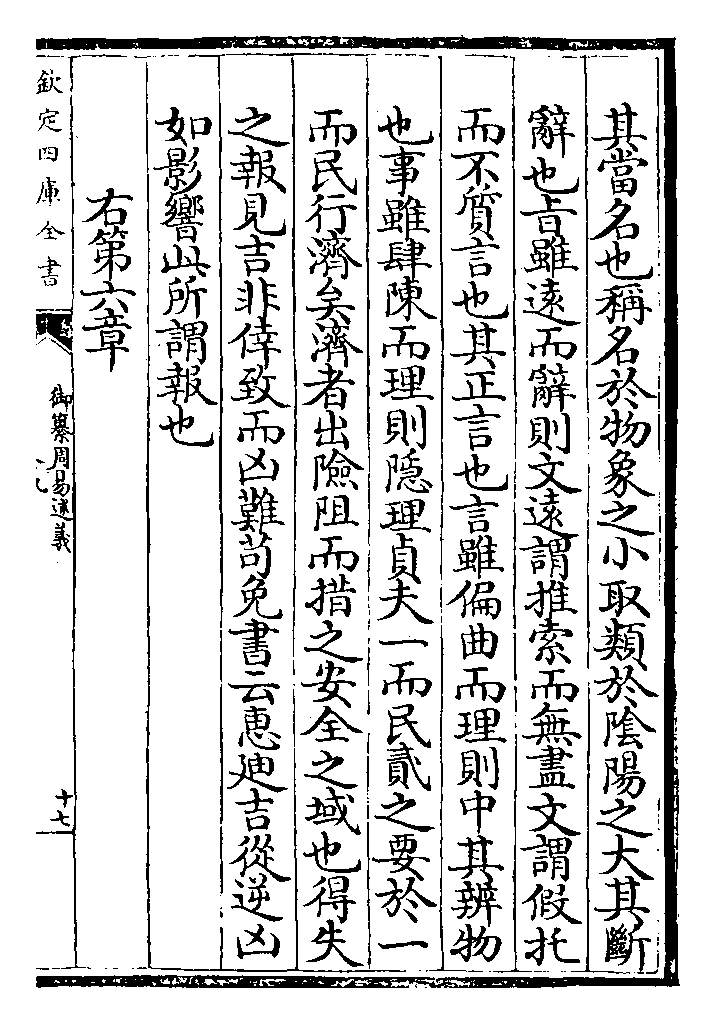 其當名也稱名於物象之小取類於陰陽之大其斷
辭也旨雖遠而辭則文遠謂推索而無盡文謂假托
而不質言也其正言也言雖偏曲而理則中其辨物
也事雖肆陳而理則隱理貞夫一而民貳之要於一
而民行濟矣濟者出險阻而措之安全之域也得失
之報見吉非倖致而凶難茍免書云惠迪吉從逆凶
如影響此所謂報也
右第六章
欽定四庫全書
御纂周易述義
十七